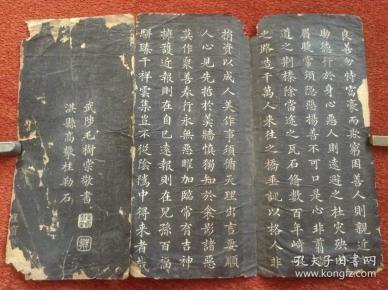 良善勿恃富豪而欺窮困善人則親近之
助德行於身心惡人則遠避之杜災殃於
眉睫常須隱惡揚善不可口是心非剪礙
道之荊榛除當途之瓦石修數百年崎嶇
之路造千萬人來往之橋垂訓以格人非
捐資以成人美作事須循天理出言要順
人心見先哲於羹牆慎獨知於衾影諸惡
莫作眾善奉行永無惡曜加臨常有吉神
擁護近報則在自己遠報則在兒孫百福
駢臻千祥雲集豈不從陰騭中得來者哉
武陟毛樹棠敬書
淇縣高擎柱勒石
孔夫子旧书网